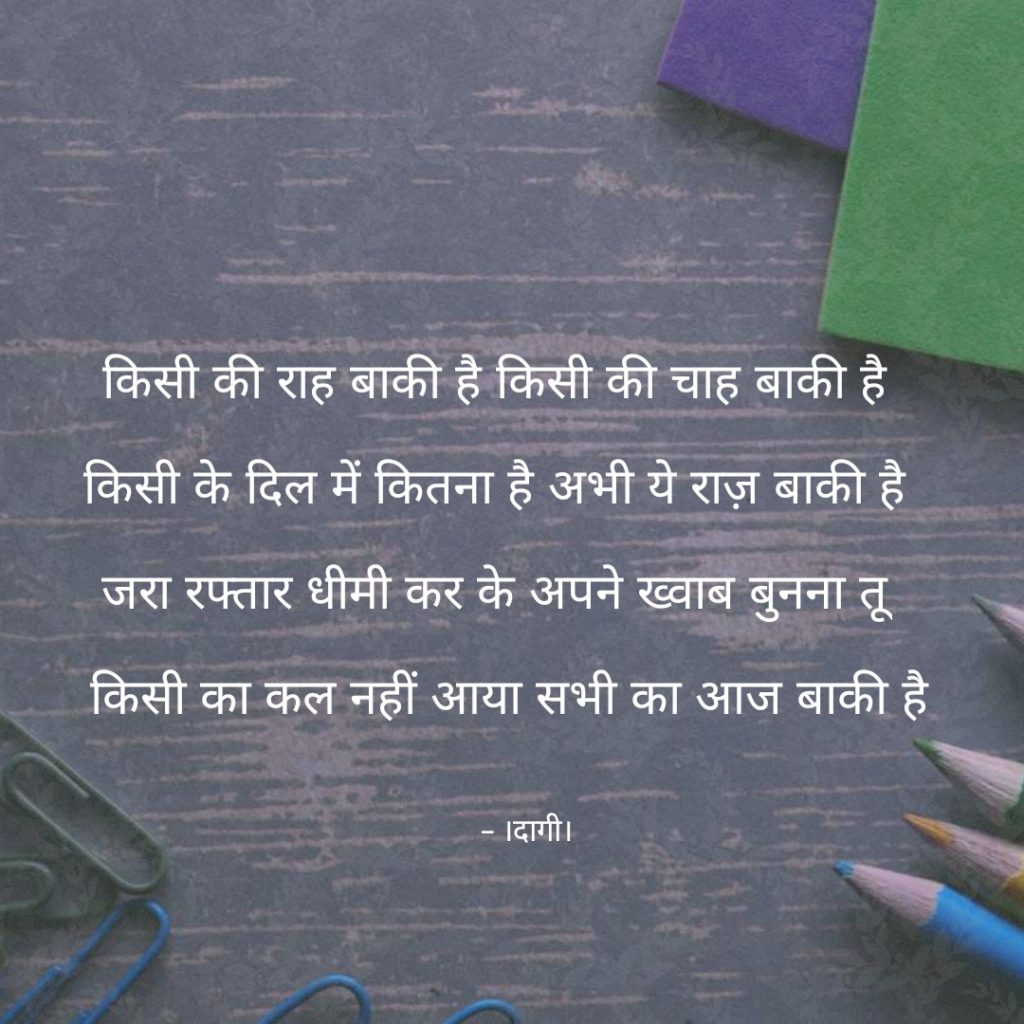 किसी की राह बाकी है किसी की चाह बाकी है
किसी के दिल में कितना है अभी ये राज़ बाकी है
जरा रफ्तार धीमी कर के अपने ख्वाब बुनना तू
किसी का कल नहीं आया सभी का आज बाकी है
– ।दागी।